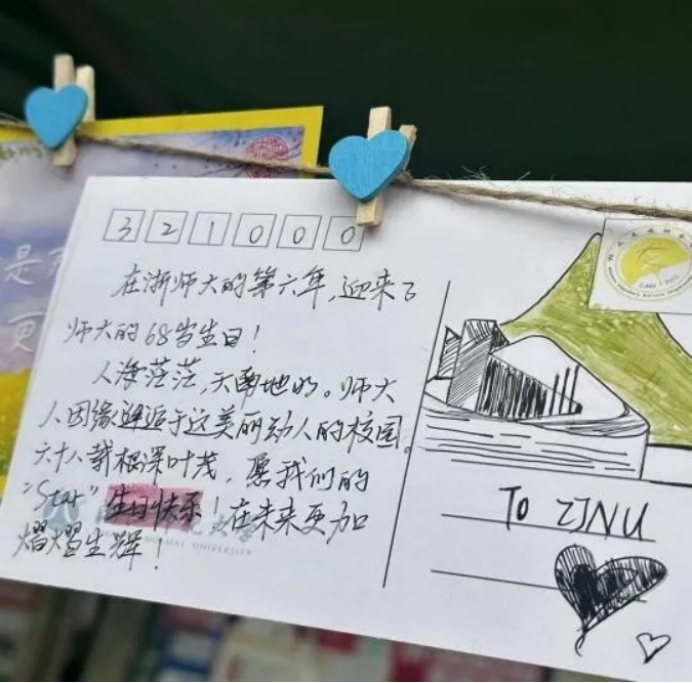 321000
在浙师大的第六年,迎来了
师大的68岁生日!
人海茫茫,天南地北。师大
人因缘邂逅于这美丽动人的校园。
六十八载根深叶茂,愿我们的
"Star"生日快乐!在未来更加
熠熠生辉!
NORMAL UNIVERSITY
To ZJNU
是
更